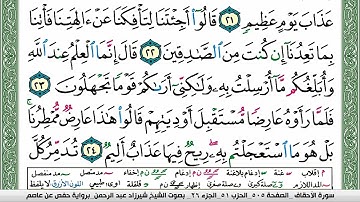 عَذَابَ يَوْمٍ عَظِيمٍ ٢١ قَالُوٓا۟ أَجِئْتَنَا لِتَأْفِكَنَا عَنْ ءَالِهَتِنَا فَأْتِنَا
بِمَا تَعِدُنَآ إِن كُنتَ مِنَ ٱلصَّٰدِقِينَ ٢٢ قَالَ إِنَّمَا ٱلْعِلْمُ عِندَ ٱللَّهِ
وَأُبَلِّغُكُم مَّآ أُرْسِلْتُ بِهِۦ وَلَٰكِنِّىٓ أَرَىٰكُمْ قَوْمًا تَجْهَلُونَ ٢٣
فَلَمَّا رَأَوْهُ عَارِضًا مُّسْتَقْبِلَ أَوْدِيَتِهِمْ قَالُوا۟ هَٰذَا عَارِضٌ مُّمْطِرُنَا
بَلْ هُوَ مَا ٱسْتَعْجَلْتُم بِهِۦ رِيحٌ فِيهَا عَذَابٌ أَلِيمٌ ٢٤ تُدَمِّرُ كُلَّ
سورة الأحقاف الصفحة ٥٠٥ الحزب ٥١ الجزء ٢٦ بصوت الشيخ شيرزاد عبد الرحمن برواية حفص عن عاصم